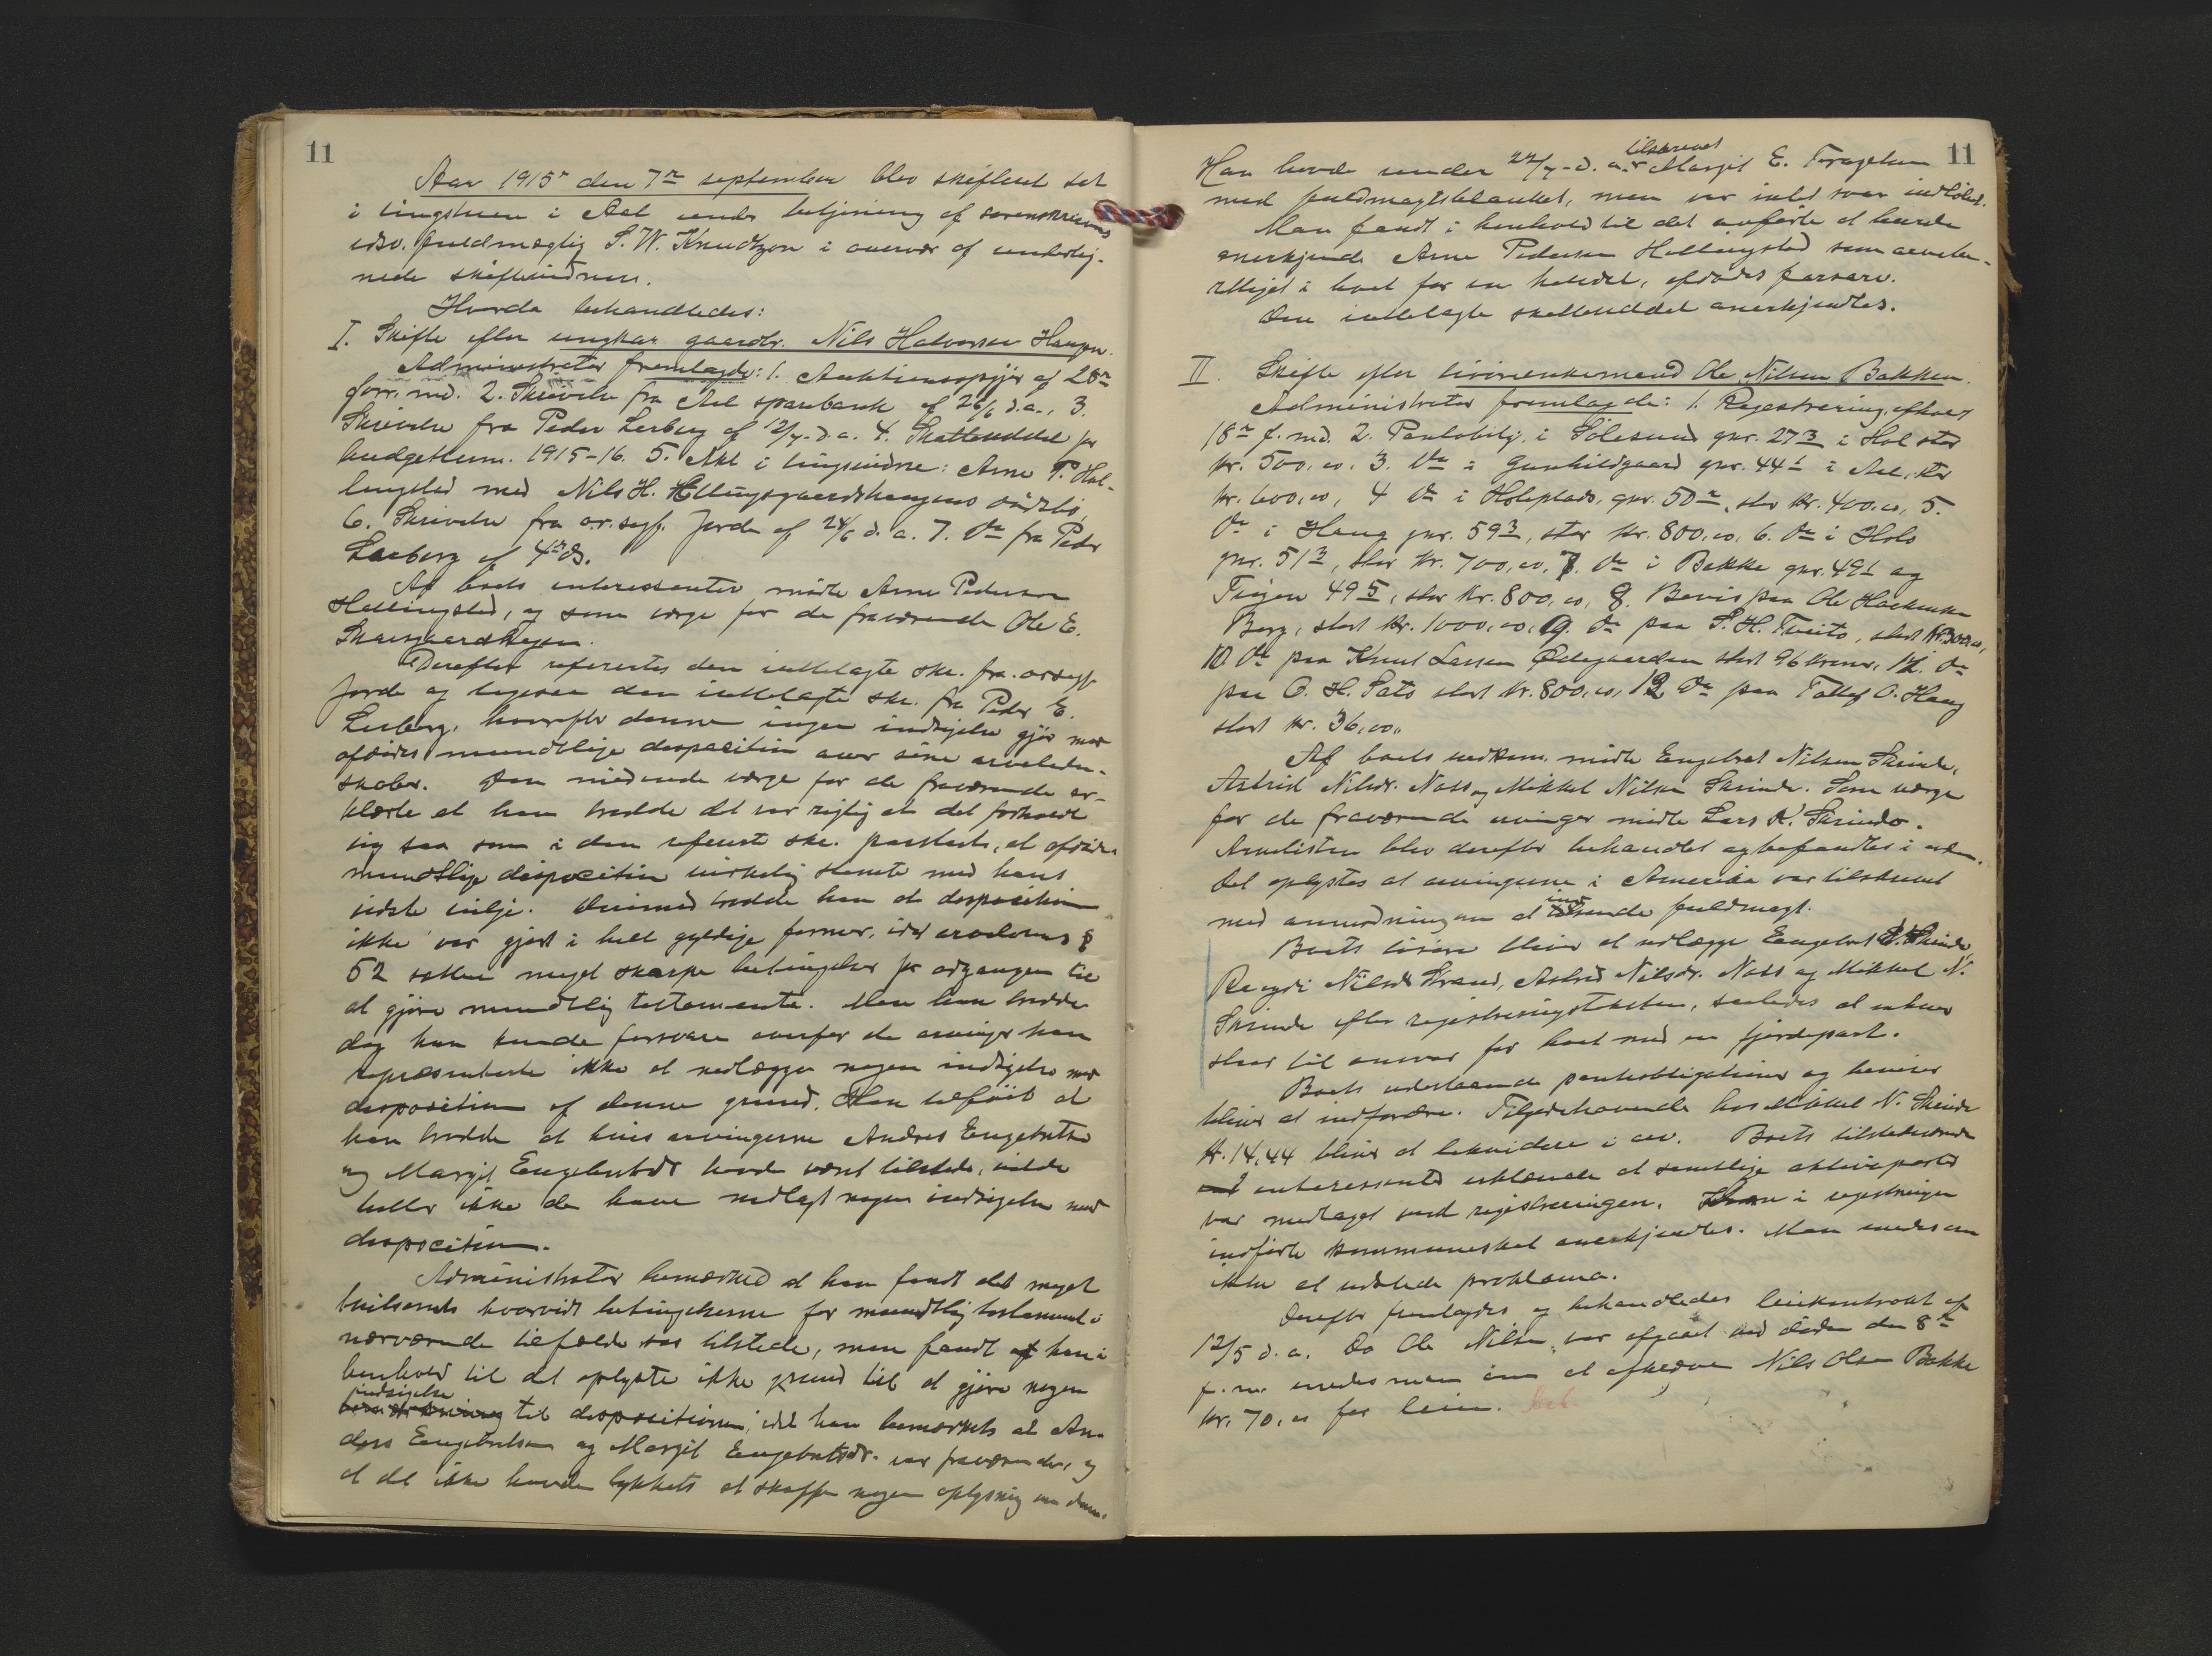 11
Aar 1915 den 7de september blev skifteret sat
i tingstuen i Aal under betjening af sorenskriverens
edsv. fuldmægtig S. W. Knudtzon i overvær af underteg-
nede skiftevidner.
Hvorda behandledes:
I. Skifte efter ungkar gaardbr. Nils Halvorsen Haugen.
Administrator fremlagde: 1. Auktionsopgjør af 28de
forr. md. 2. Skrivelse fra Aal sparebank af 26/6 d.a., 3.
Skrivelse fra Peder Lerberg af 12/7 d.a. 4. Skatteseddel for
budgetterm. 1915-16. 5. Akt i tingsvidne: Arne P. Hal-
lingstad med Nils H. Hallingsgaardshaugens dødsbo,
6. Skrivelse fra o.r.sagf. Jorde af 24/6 d.a. 7. Do fra Peder
Lerberg af 4de ds.
Af boets interessenter mødte Arne Pedersen
Hallingstad, og som værge for de fraværende Ole E.
Skarsgaardhagen.
Derefter refereertes den indlagte skr. fra orsagf.
Jorde og ligesaa den indlagte skr. fra Peder E.
Lerberg, hvorefter denne ingen indsigelse gjør mod
afdødes mundtlige disposition over sine arveleder-
skaber. Den mødende værge for de fraværende er-
klærte at han trodde det var rigtig at det forholdt
sig saa som i den refererte skr. paastaat, at afdødes
mundtlige disposition virkelig stemte med hans
sidste vilje. Derimod trodde han at disposition
ikke var gjort i helt gyldige former, idet arvelovens §
52 sætter meget skarpe betingelser for adgangen til
at gjøre mundtlig testamente. Men han trodde
dog han kunde forsvare overfor de arvinger han
repræsenterte ikke at nedlægge nogen indsigelse mod
disposition af denne grund. Han tilføiet at
han trodde at hvis arvingerne Anders Engebretsen
og Margit Engebretsdr havde været tilstede, vilde
heller ikke de have nedlagt nogen indsigelse mod
disposition.
Administrator bemærket at han fandt det meget
tvilsomt hvorvidt betingelserne for mundtlig testament i
nærværende tilfælde var tilstede, men fandt at han i
henhold til det oplyste ikke grund til at gjøre nogen
indsigelse
til dispositionen, idet han bemærkets at An-
ders Engebretsen og Margit Engebretsdr. var fraværende, og
at det ikke havde lykkets at skaffe nogen oplysning om dem.
11
tilskrevet
Han havde under 22/7 d.a. Margit E. Torageben
med fuldmagtsblanket, men var intet svar indløbet.
Man fandt i henhold til det anførte at burde
anerkjende Arne Pedersen Hallingstad som arvebe-
rettiget i boet for en halvdel, afdødes farsarv.
Den indlagte skatteseddel anerkjendtes.
II. Skifte efter livørenkemand Ole Nilsen Bakken.
Administrator fremlagde: 1. Registrering, afholdt
18de f. md. 2. Pantoblig. i Sølesund gnr. 27 3 i Hol stor
kr. 500,00. 3. Do i Gunhildgaard gnr. 44 1 i Aal, stor
kr. 600,00, 4 Do i Holeplads, gnr. 50 2, stor kr. 400,00, 5.
Do i Haug gnr. 59 3, stor kr. 800,00, 6. Do i Holo
gnr. 51 3, stor kr. 700,00, 7. Do i Bakke gnr. 49 1 og
49 5, stor kr. 800,00, 8. Bevis paa Ole
Berg, stort kr. 1000,00, 9. Do paa S. H. Tveito, stort kr. 300,00,
10. Do paa Knut Larsen Ødegaarden stort 96 kroner, 11. Do
paa O. H. Sato stort kr. 800,00, 12 Do paa Tollef O. Haug
stort kr. 36,00.
Af boets vedkom. mødte Engebret Nilsen Skrinde,
Astrid Nilsdr. Nass og Mikkel Nilsen Skrinde. Som værge
for de fraværende arvinger mødte Lars K. Skrindo.
Arvelisten blev derefter behandlet og befandtes i orden.
Det oplystes at arvingerne i Amerika var tilskrevet
ind
med anmodning om at sende fuldmagt.
Boets løsøre bliver at udlægge Engebret N. Skrinde,
Ragndi Nilsdr Strand, Astrid Nilsdr. Nass og Mikkel N.
Skrinde efter registreringstaksten, saaledes at enhver
svar til ansvar for boet med en fjerdepart.
Boets udestaaende pantobligationer og beviser
bliver at indfordre. Tilgodehavende hos Mikkel N. Skrinde
kr. 14,44 bliver at likvidere i arv. Boets tilstedeværende
interessenter erklærede at samtlige aktivaposter
var medtaget ved registreringen. i registreringen
indførte kommuneskat anerkjendtes. Man enedes om
ikke at udstede proklama.
Derefter fremlagdes og behandledes leiekontrakt af
12/5 d.a. Da Ole Nilsen var afgaaet ved døden den 8de
f.m. enedes man om at afkræve Nils Olsen Bakke
kr. 70,00 for leien.